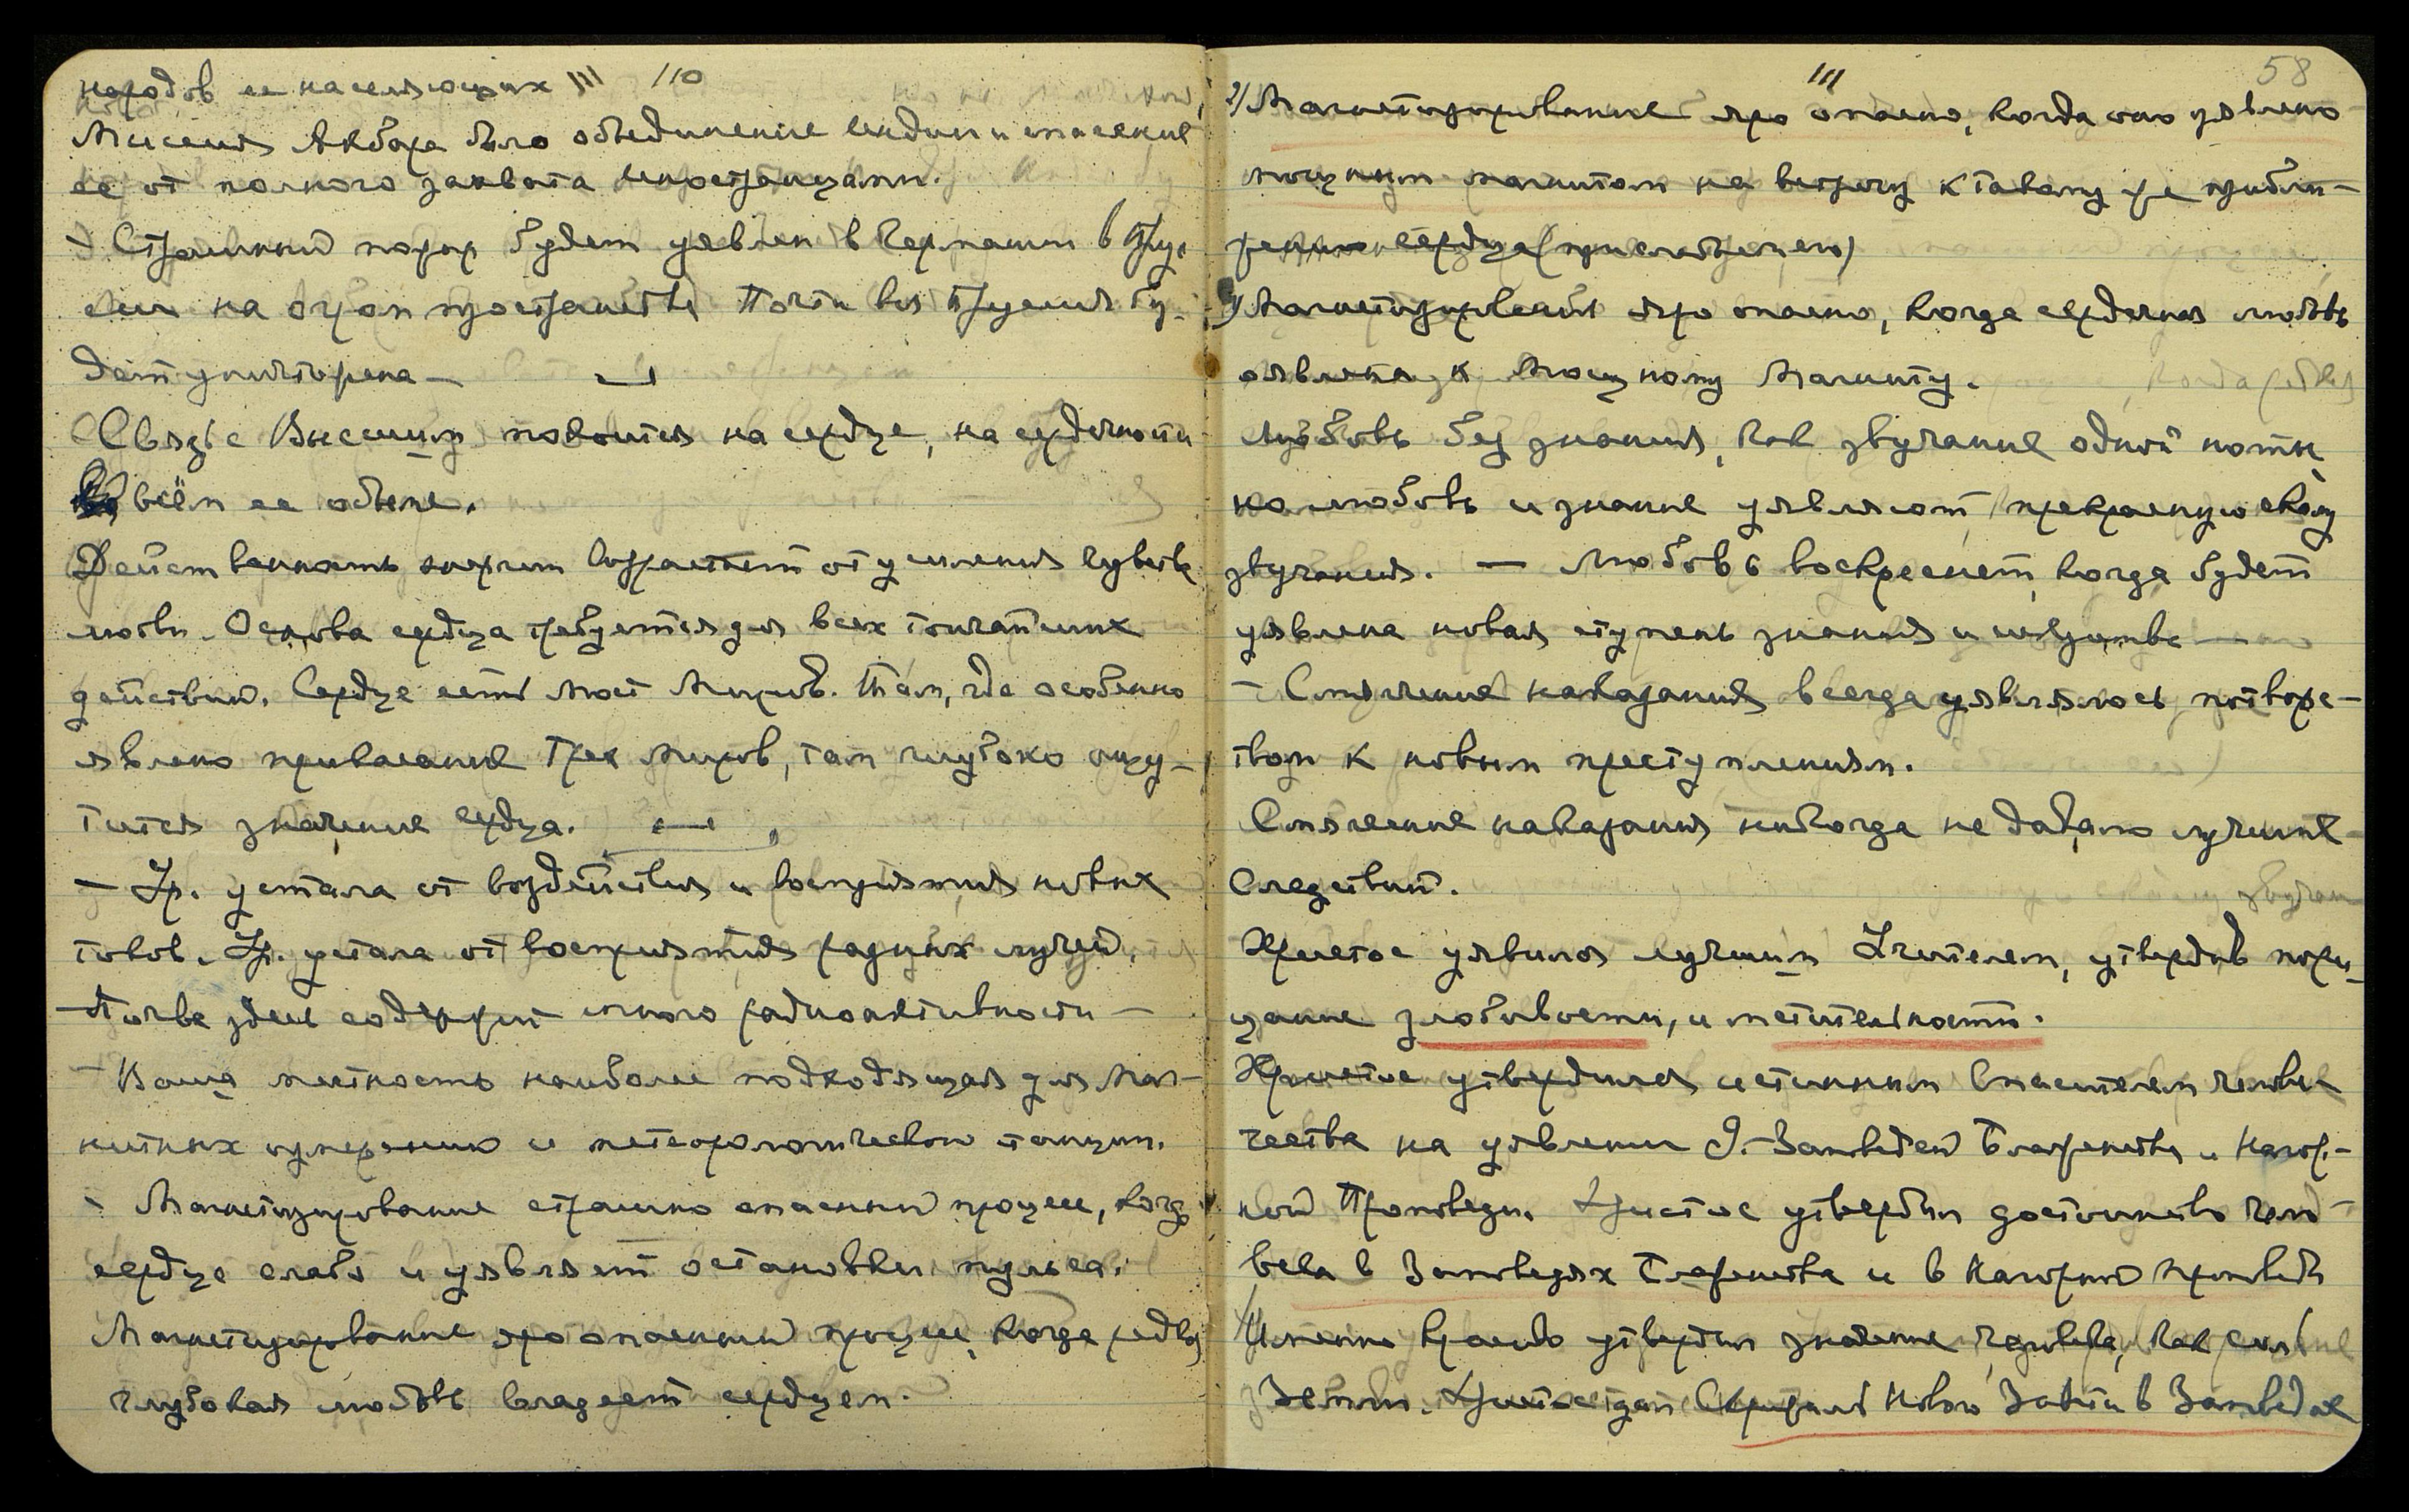 народов ее населяющих 110
Миссия Акбара было объединение Индии и спасение
ее от полного захвата иностранцами.
– Страшный пожар будет уявлен в Германии в Пру-
сии на огром пространстве Почти вся Пруссия бу-
дет уничтожена –
Связь с Высшим покоится на сердце, на сердечности
во всём ее объеме.
Действенность энергии возрастает от усиления чувства
любви. Основа сердца требуется для всех тончайших
действий. Сердце есть мост Миров. Там, где особенно
явлено прикасание трех миров, там глубоко ощу-
тится значение сердца.
– Ур. устала от воздействия и восприятия новых
токов. Ур. устала от восприятия разных лучей.
– Почва здесь содержит много радиоактивности –
– Ваша местность наиболее подходящая для маг-
нитных измерений и метеорологической станции.
– Магнетизирование страшно опасный процесс, когда
сердце слабо и уявляет остановки пульса.
Магнетизирование яро опасный процесс, когда редкая
глубокая любовь владеет сердцем.
111 58
2) Магнетизирование яро опасно, когда оно уявлено
мощным магнитом на встречу к таковому же прибли-
жению сердца
3) Магнетизирование яро опасно, когда сердечная любовь
оявлена к Мощному Магниту.
Любовь без знания, как звучание одной ноты,
но любовь и знание уявляют прекрасную гамму
звучания. – Любовь воскреснет, когда будет
уявлена новая ступень знания и искусства –
– Смягчение наказания всегда уявлялось потворс-
твом к новым преступлениям.
Смягчение наказания никогда не давало лучших
следствий.
Христос уявился лучшим Учителем, утвердив пори-
цание злобивости, и мстительности.
Христос утвердился истинным Спасителем челове-
чества на уявлении 9. Заповедей Блаженства и Нагор-
ной Проповеди. Христос утвердил достоинство чело-
века в Заповедях Блаженства и в Нагорной проповеди
Именно Христос утвердил значение человека, как соль
Земли. Христос дал Скрижаль Нового Завета в Заповедях